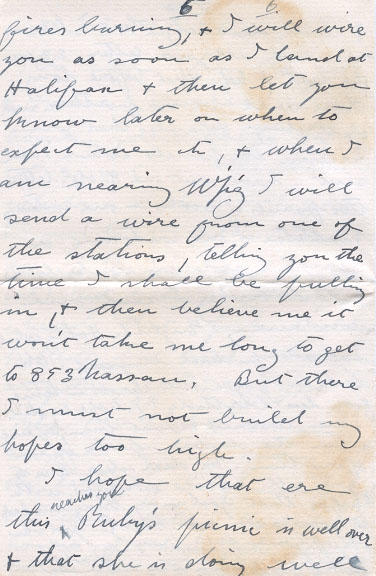 5 6.
fires burning, & I will wire
you as soon as I land at
Halifax & then let you
know later on when to
expect me &c, & when I
am nearing W'p'g I will
send a wire from one of
the stations, telling you the
time I shall be pulling
in, & then believe me it
won't take me long to get
to 893 Nassau. But there
I must not build my
hopes too high.
I hope that ere
reaches you
this Ruby's picnic is well over
& that she is doing well